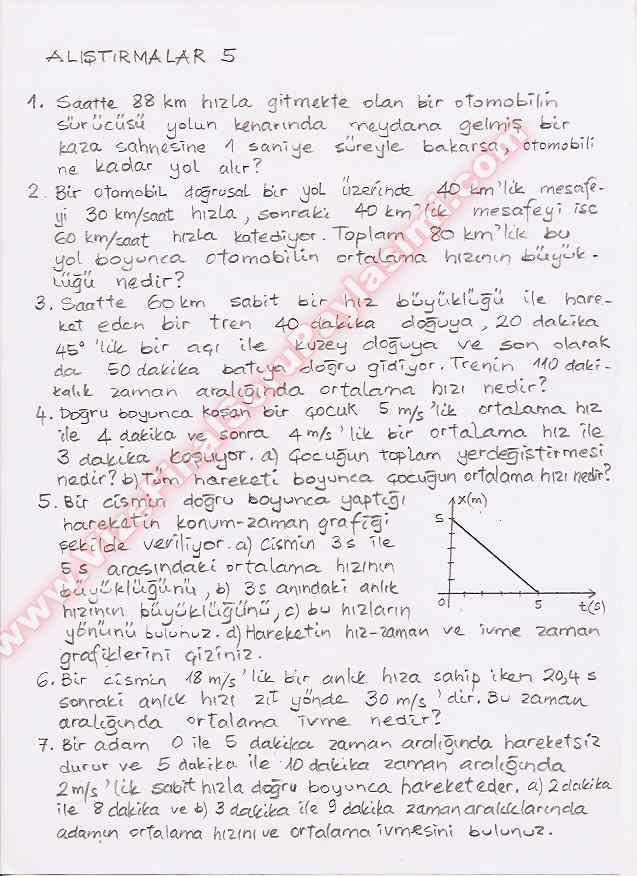 ALIŞTIRMALAR 5
1. Saatte 88 km hızla gitmekte olan bir otomobilin
sürücüsü yolun kenarında meydana gelmiş bir
kaza sahnesine 1 saniye süreyle bakarsa, otomobili
ne kadar yol alır?
2. Bir otomobil doğrusal bir yol üzerinde 40 km'lik mesafe-
yi 30 km/saat hızla, sonraki 40 km'lik mesafeyi ise
60 km/saat hızla katediyor. Toplam 80 km'lik bu
yol boyunca otomobilin ortalama hızının büyük-
lüğü nedir?
3. Saatte 60 km sabit bir hız büyüklüğü ile hare-
ket eden bir tren 40 dakika doğuya, 20 dakika
45°'lik bir açı ile kuzey doğuya ve son olarak
da 50 dakika batıya doğru gidiyor. Trenin 110 daki-
kalık zaman aralığında ortalama hızı nedir?
4. Doğru boyunca koşan bir çocuk 5 m/s'lik ortalama hız
ile 4 dakika ve sonra 4 m/s'lik bir ortalama hız ile
3 dakika koşuyor. a) Çocuğun toplam yerdeğiştirmesi
nedir? b) Tüm hareketi boyunca çocuğun ortalama hızı nedir?
5. Bir cismin doğru boyunca yaptığı
hareketin konum-zaman grafiği
şekilde veriliyor. a) Cismin 3s ile
5s arasındaki ortalama hızının
büyüklüğünü, b) 3s anındaki anlık
hızının büyüklüğünü, c) bu hızların
yönünü bulunuz. d) Hareketin hız-zaman ve ivme zaman
grafiklerini çiziniz.
x(m)
5
0
5
t(s)
6. Bir cismin 18 m/s'lik bir anlık hıza sahip iken 20,4 s
sonraki anlık hızı zıt yönde 30 m/s'dir. Bu zaman
aralığında ortalama ivme nedir?
7. Bir adam 0 ile 5 dakika zaman aralığında hareketsiz
durur ve 5 dakika ile 10 dakika zaman aralığında
2 m/s'lik sabit hızla doğru boyunca hareket eder. a) 2 dakika
ile 8 dakika ve b) 3 dakika ile 9 dakika zaman aralıklarında
adamın ortalama hızını ve ortalama ivmesini bulunuz.
www.VizeFinalSoruPaylasimi.com